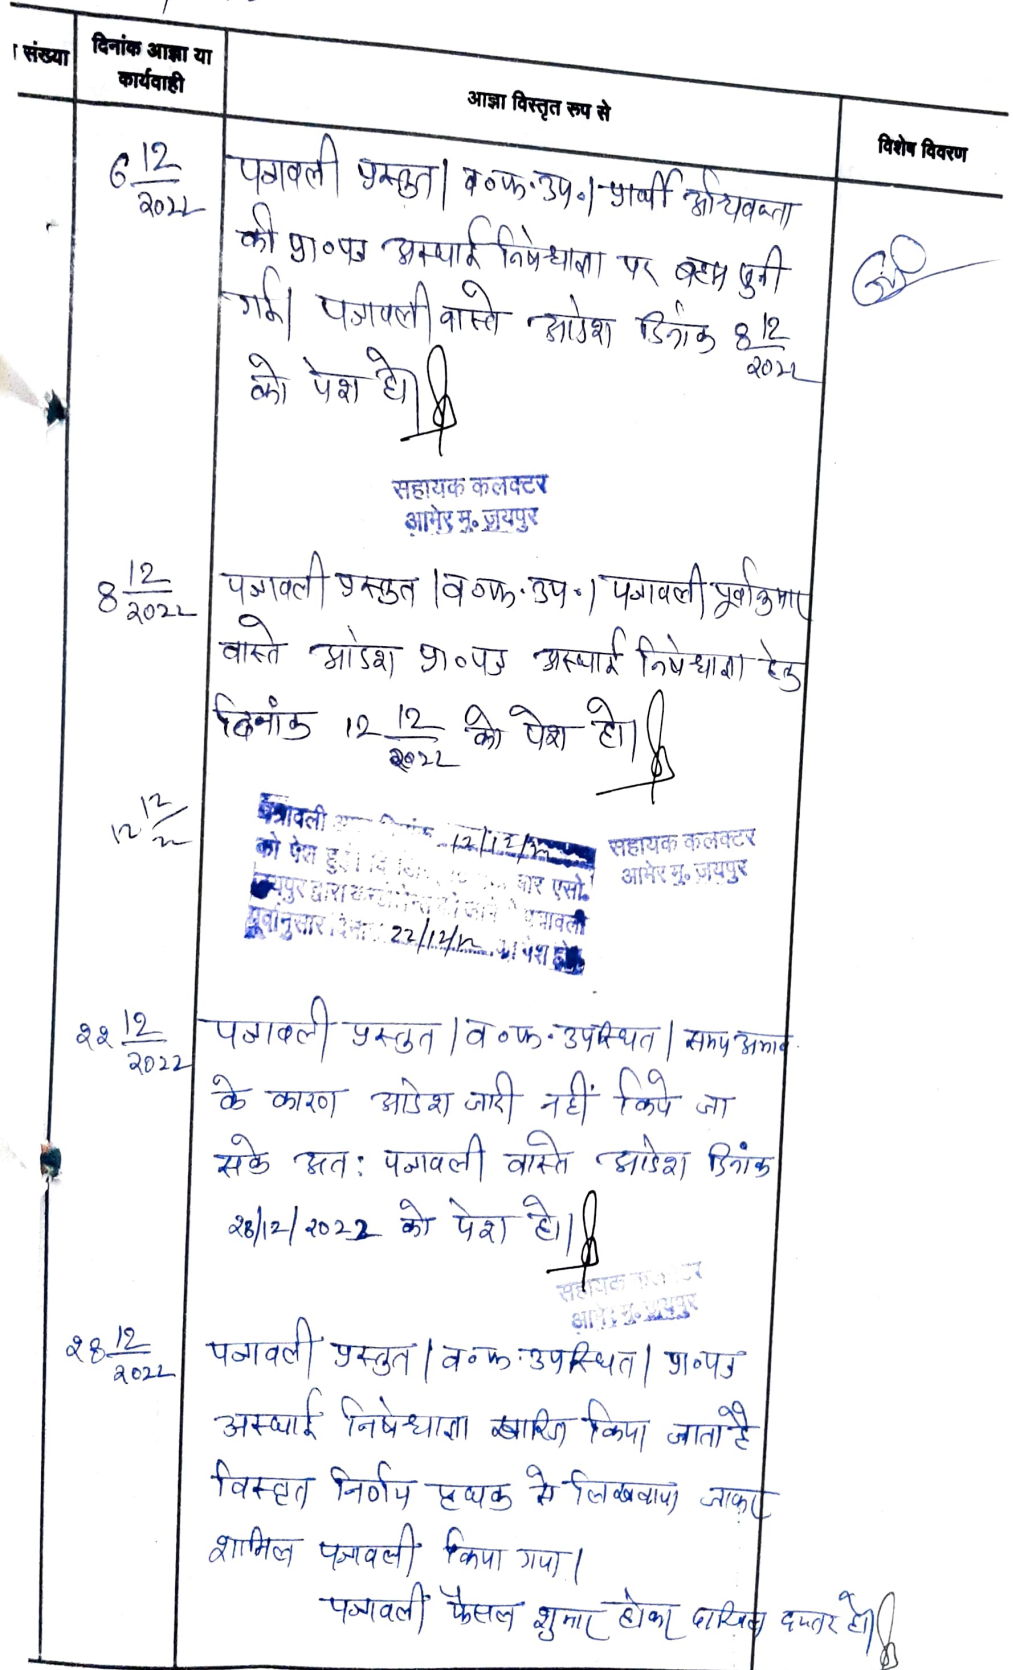 संख्या
दिनांक आज्ञा या
कार्यवाही
आज्ञा विस्तृत रूप से
विशेष विवरण
6 12/2022
पत्रावली प्रस्तुत। व०फ०उप०। प्रार्थी अधिवक्ता
की प्रा०पत्र अस्थाई निषेधाज्ञा पर बहस सुनी
गई। पत्रावली वास्ते आदेश दिनांक 8 12/2022
को पेश हो।
सहायक कलक्टर
आमेर मु. जयपुर
8 12/2022
पत्रावली प्रस्तुत। व०फ०उप०। पत्रावली पूर्वानुसार
वास्ते आदेश प्रा०पत्र अस्थाई निषेधाज्ञा हेतु
दिनांक 12 12/2022 को पेश हो।
12 12/22
पत्रावली 12/12/22
को पेश हुई। आर एसो.
जयपुर द्वारा पत्रावली
पूर्वानुसार 22/12/22 पेश हो
सहायक कलक्टर
आमेर मु. जयपुर
22 12/2022
पत्रावली प्रस्तुत। व०फ०उपस्थित। समय अभाव
के कारण आदेश जारी नहीं किये जा
सके अत: पत्रावली वास्ते आदेश दिनांक
28/12/2022 को पेश हो।
सहायक कलक्टर
आमेर मु. जयपुर
28 12/2022
पत्रावली प्रस्तुत। व०फ०उपस्थित। प्रा०पत्र
अस्थाई निषेधाज्ञा खारिज किया जाता है
विस्तृत निर्णय पृथक से लिखवाया जाकर
शामिल पत्रावली किया गया।
पत्रावली फैसल शुमार होकर दाखिल दफ्तर हो।